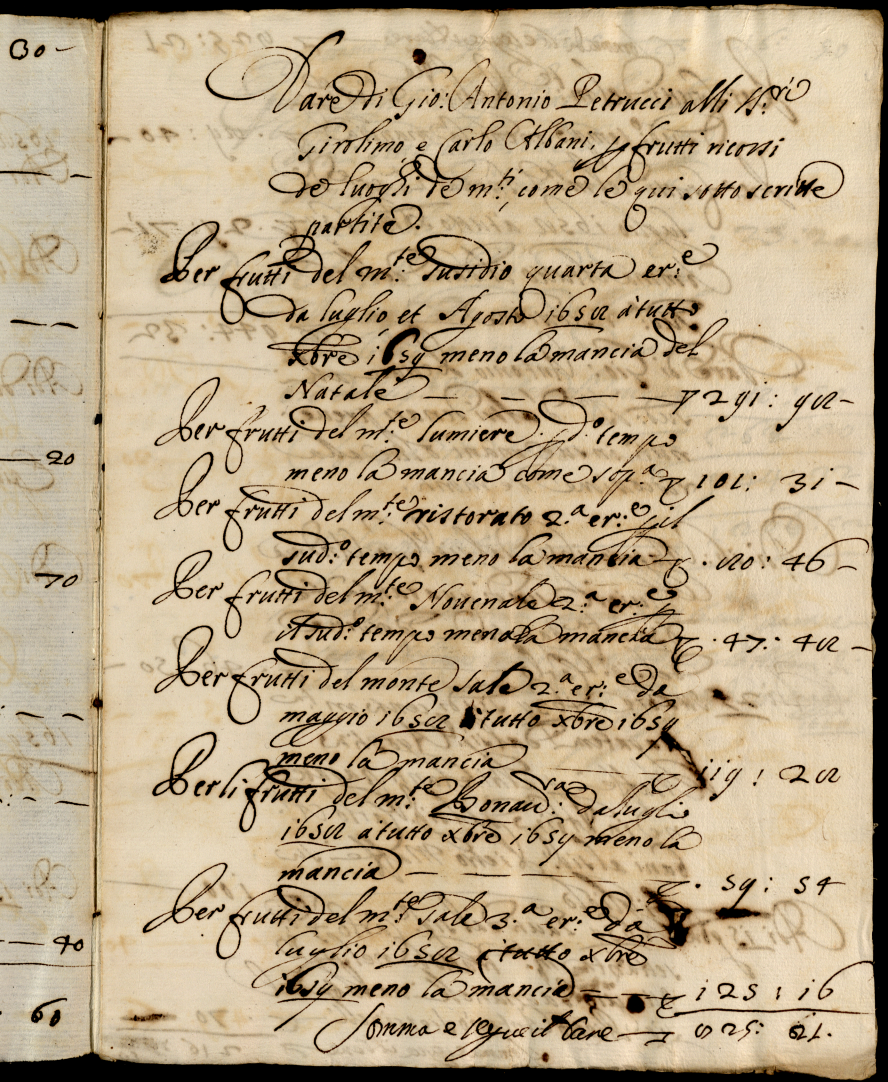 30 -
20
70
40
60
Dare di Gio: Antonio Petrucci alli SS.ri
Girolimo, e Carlo Albani, p frutti ricorsi
de luoghi de m.ti, come le qui sotto scritte
partite.
Per frutti del m.te Susidio quarta er:e
da luglio et Agosto 1658 à tutto
xbre 1659 meno la mancia del
Natale — — — — 291 : 98 -
Per frutti del m.te lumiere p d.o tempo
meno la mancia come sop.a 101 : 31 -
Per frutti del m.te ristorato 2.a er:e p il
sud.o tempo meno la mancia . 80 : 46 -
Per frutti del m.te Novenale 2.a er:e p
il sud.o tempo meno la mancia . 47 : 48 -
Per frutti del monte sale 2.a er:e da
maggio 1658 à tutto xbre 1659
meno la mancia — 119 : 28
Per li frutti del m.te Bonav:ra da lugli
1658 à tutto xbre 1659 meno la
mancia — — — — . 59 : 54
Per frutti del m.te Sale 3.a er:e da
luglio 1658 à tutto xbre
1659 meno la mancia — — 125 : 16
Somma e segue il Dare — 825 : 21.